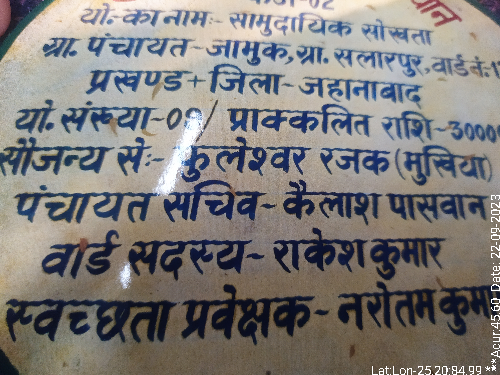 यो. का नाम:- सामुदायिक सोखता
ग्रा. पंचायत-जामुक, ग्रा. सलारपुर, वार्ड नं.
प्रखण्ड+जिला-जहानाबाद
यो. संख्या-09/ प्राक्कलित राशि-3000
सौजन्य से:- कुलेश्वर रजक (मुखिया)
पंचायत सचिव-कैलाश पासवान
वार्ड सदस्य-राकेश कुमार
स्वच्छता प्रवेक्षक-नरोतम कुमा
Lat:Lon-25.20:84.99 **
**Acur:45.60 Date: 22-09-2023